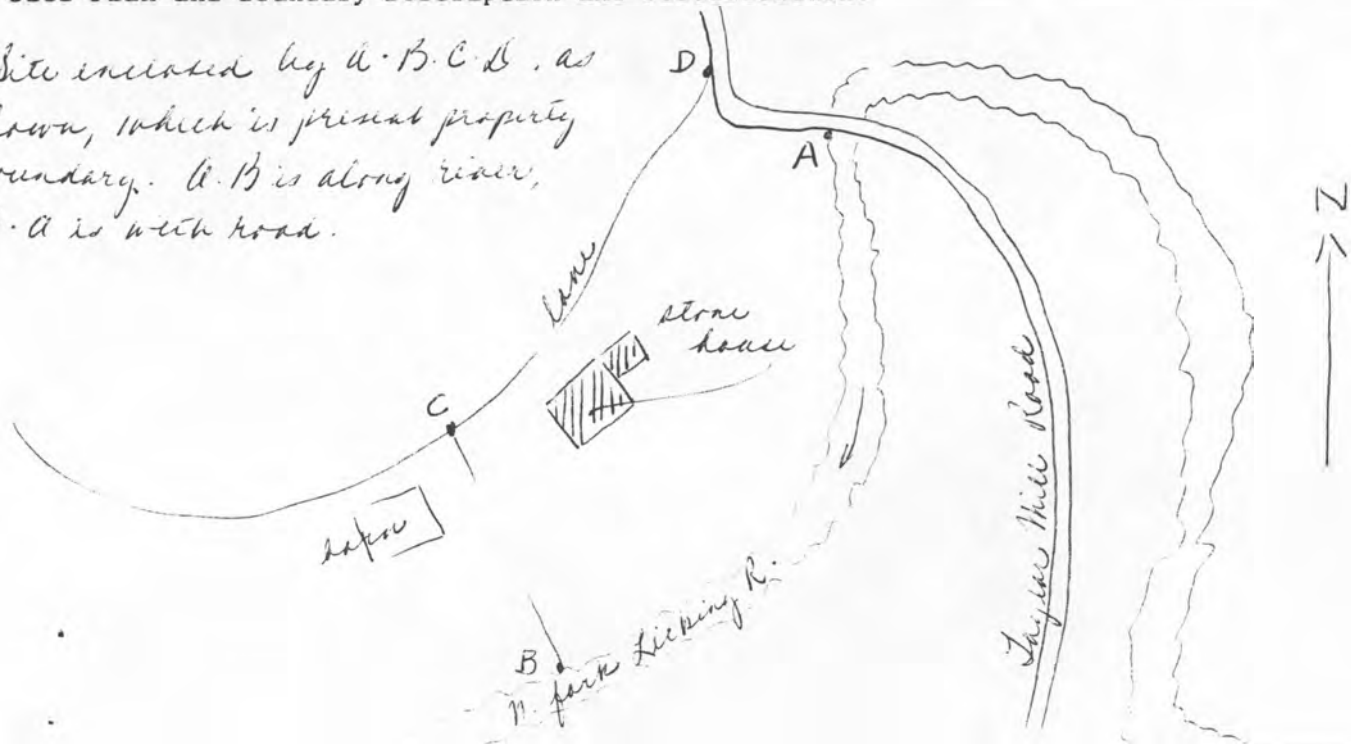 Site enclosed by A.B.C.D. as
shown, which is present property
boundary. A.B is along river,
A is with road.
D
A
N
lane
stone
house
C
B
N. fork Licking R.
Mill Road